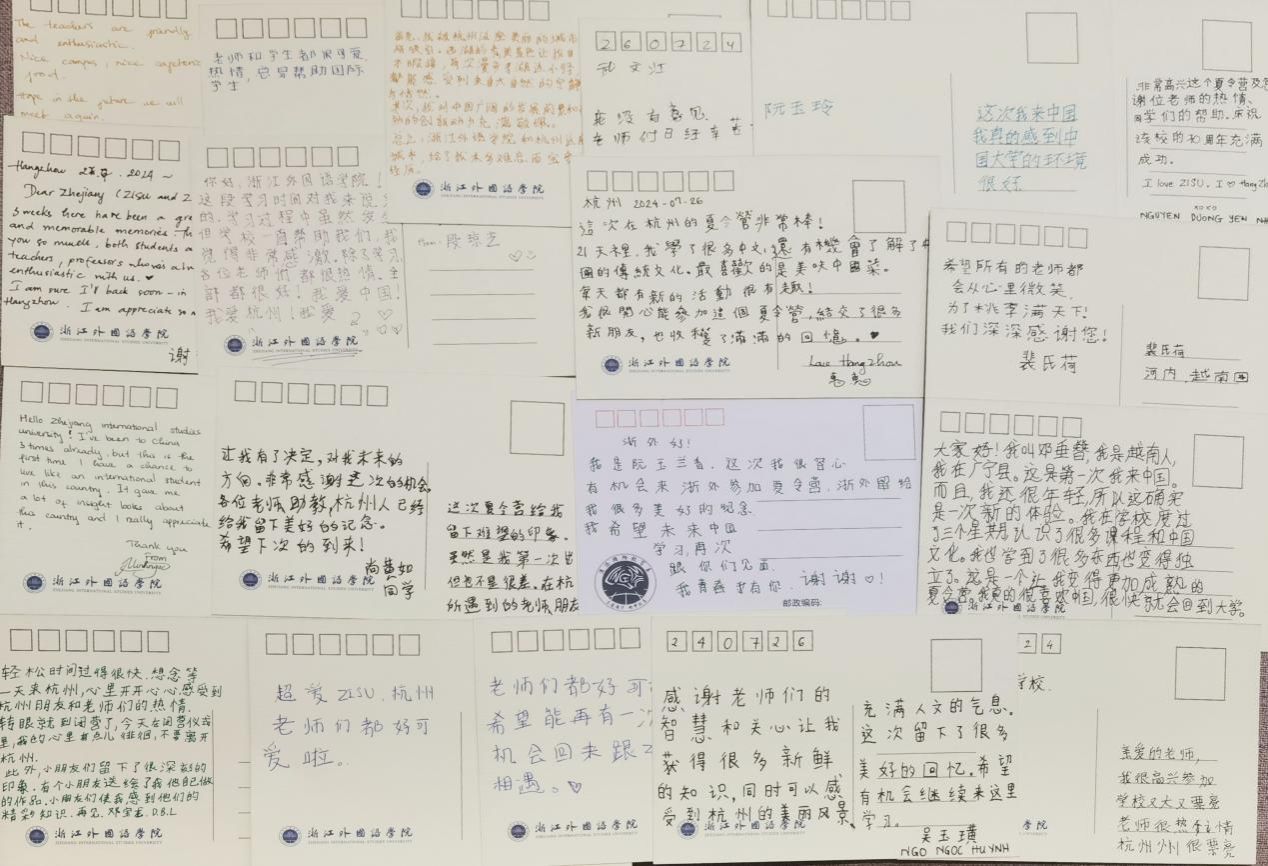 The teachers are friendly
and enthusiastic.
Nice campus, nice cafeteria
food.
Hope in the future we will
meet again.
老师和学生都很可爱
热情，总是帮助国际
学生
浙江外国语学院
260724
老师们日经辛苦
阮玉玲
这次我来中国
我真的感到中
国大学的环境
很好
非常高兴这个夏令营及感
谢位老师的热情、
同学们的帮助。乐说
该校的30周年充满
成功。
I love ZISU. I ♡ Hang
xoxo
NGUYEN DUONG YEN
Hangzhou 2024 ~
Dear Zhejiang (ZISU and Z
3 weeks there have been a gre
and memorable memories. Th
you so much, both students a
teachers, professors who
enthusiastic with us. ♥
I am sure I'll back soon - in
Hangzhou. I am appreciate
浙江外國語學院
谢
你好，浙江外国语学院！
这段学习时间对我来说
的。学习过程中虽然发生
但学校一直帮助我们。我
觉得非常感激。除了学习
各位老师们都很热情。全
部都很好！我爱中国！
我爱杭州！我爱
浙江外國語學院
ZHEJIANG INTERNATIONAL STUDIES UNIVERSITY
From: 段琼芝 ♡
杭州 2024-07-26
這次在杭州的夏令營非常棒！
21天裡，我學了很多中文，還有機會了解了中
國的傳統文化。最喜歡的是美味中國菜。
每天都有新的活動很有趣！
我很開心能參加這個夏令營，結交了很多
新朋友，也收穫了滿滿的回憶。♥
Love Hangzhou
浙江外國語學院
希望所有的老师都
会从心里微笑
为了桃李满天下！
我们深深感谢您！
裴氏荷
裴氏荷
河内，越南国
Hello Zhejiang international studies
university! I've been to China
3 times already, but this is the
first time I have a chance to
live like an international student
in this country. It gave me
a lot of insight looks about
this country and I really appreciate
it.
Thank you
From
浙江外國語學院
ZHEJIANG INTERNATIONAL STUDIES UNIVERSITY
让我有了决定，对我未来的
方向。非常感谢这次的机会，
各位老师，助教，杭州人已经
给我留下美好的记念。
希望下次的到来！
尚黄如
同学
浙江外國語學院
ZHEJIANG INTERNATIONAL STUDIES UNIVERSITY
这次夏令营给我
留下难望的印象。
虽然是我第一次出
但也不是很差。在杭
所遇到的老师，朋友
浙外好！
我是阮玉兰香，这次我很官心
有机会来浙外参加夏令营，浙外留给
我很多美好的记忘
我希望未来中国
学习再次
跟你们见面
我青春求有你 谢谢♡！
邮政编码:
大家好！我叫邓垂簪，我是越南人，
我在广宁县。这是第一次我来中国。
而且，我还很年轻，所以这确实
是一次新的体验。我在学校度过
了三个星期，认识了很多课程和中国
文化。我也学到了很多东西也变得独
立了。这是一个让我变得更加成熟的
夏令营。我真的很喜欢中国，很快就会回到大学。
浙江外國語學院
轻松时间过得很快。想念等
一天来杭州，心里开开心心感受到
杭州朋友和老师们的热情。
转眼就到闭营了，今天在闭营仪式
里，我的心里有点儿徘徊，不要离开
杭州。
此外，小朋友们留下了很深刻的
印象。有个小朋友送给了我他自己做
的作品。小朋友们使我感到他们的
精彩知识。再见，邓宝玄 D.B.L
浙江外國語學院
ZHEJIANG INTERNATIONAL STUDIES UNIVERSITY
超爱ZISU. 杭州
老师们都好可
爱啦。
浙江外國語學院
ZHEJIANG INTERNATIONAL STUDIES UNIVERSITY
老师们都好可
希望能再有一次
机会回来跟Z
相遇。♡
浙江外國語學院
240726
感谢老师们的
智慧和关心让我
获得很多新鲜
的知识，同时可以感
受到杭州的美丽风景，
浙江外國語學院
充满人文的气息。
这次留下了很多
美好的回忆。希望
有机会继续来这里
学习。
吴玉璜
NGO NGOC HUYNH
24
学校.
學院
亲爱的老师，
我很高兴参加
学校又大又漂亮
老师很热情
杭州州很漂亮